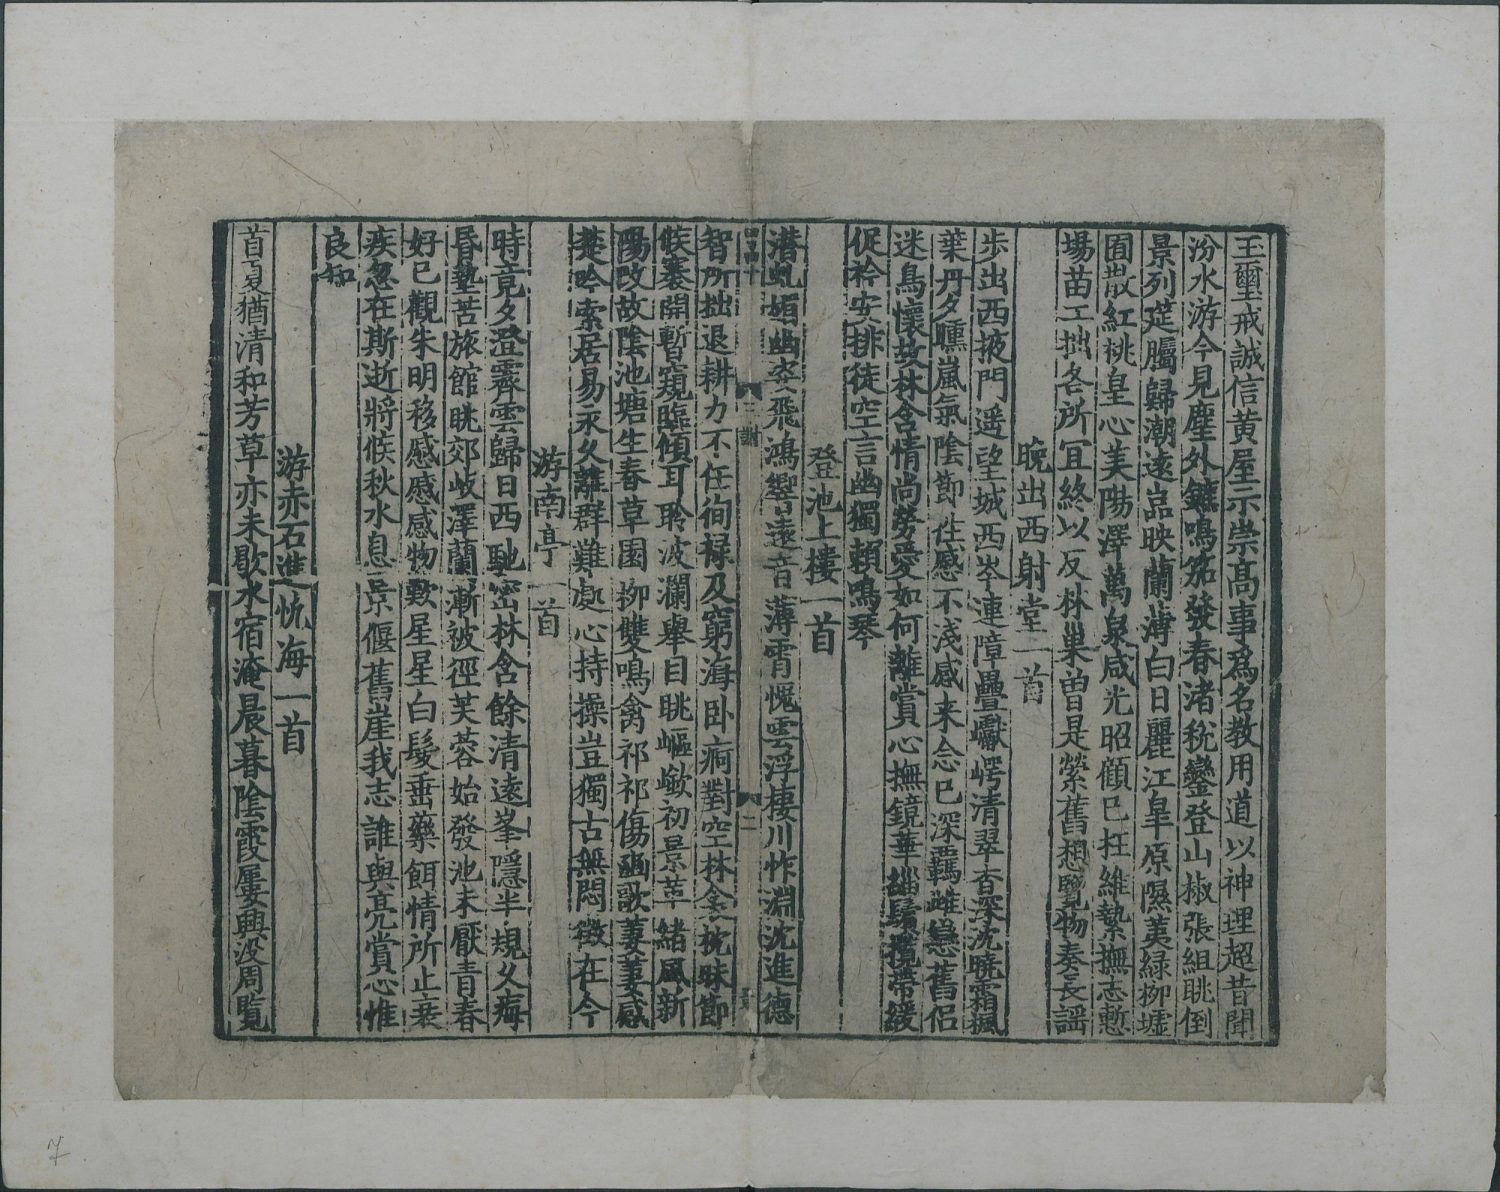 玉璽戒誠信黄屋示崇高事爲名教用道以神理超昔聞
汾水游今見塵外鑣鳴笳發春渚稅鑾登山椒張組眺倒
景列筵矚歸潮遠岩映蘭薄白日麗江皐原隰荑緑栁墟
囿散紅桃皇心美陽澤萬泉咸光昭顧己枉維縶撫志慙
場苗工拙各所冝終以反林巢曾是縈舊想覽物奏長謡
晩出西射堂一首
歩出西掖門遥望城西岑連障疊巘崿清翠杳深沈曉霜楓
葉丹夕曛嵐氣隂節往感不淺感来念已深羈雌戀舊侣
迷鳥懷故林含情尚勞愛如何離賞心撫鏡華緇鬢攬帶緩
促衿安排徒空言幽獨頼鳴琴
登池上樓一首
潜虬媚幽姿飛鴻響遠音薄霄愧雲浮棲川怍淵沈進德
二謝
二
智所拙退耕力不任徇禄及窮海卧痾對空林衾枕昧節
候褰開暫窺臨傾耳聆波瀾舉目眺嶇嶔初景革緒風新
陽改故隂池塘生春草園栁雙鳴禽祁祁傷豳歌萋萋感
楚吟索居易永久離群難處心持操豈獨古無悶徵在今
游南亭一首
時竟夕澄霽雲歸日西馳宻林含餘清遠峯隱半規久痗
昏墊苦旅館眺郊岐澤蘭漸被徑芙蓉始發池未厭青春
好已觀朱明移慼慼感物歎星星白髮垂藥餌情所止衰
疾忽在斯逝將候秋水息景偃舊崖我志誰與亮賞心惟
良知
游赤石進忛海一首
首夏猶清和芳草亦未歇水宿淹晨暮隂霞屢興没周覧